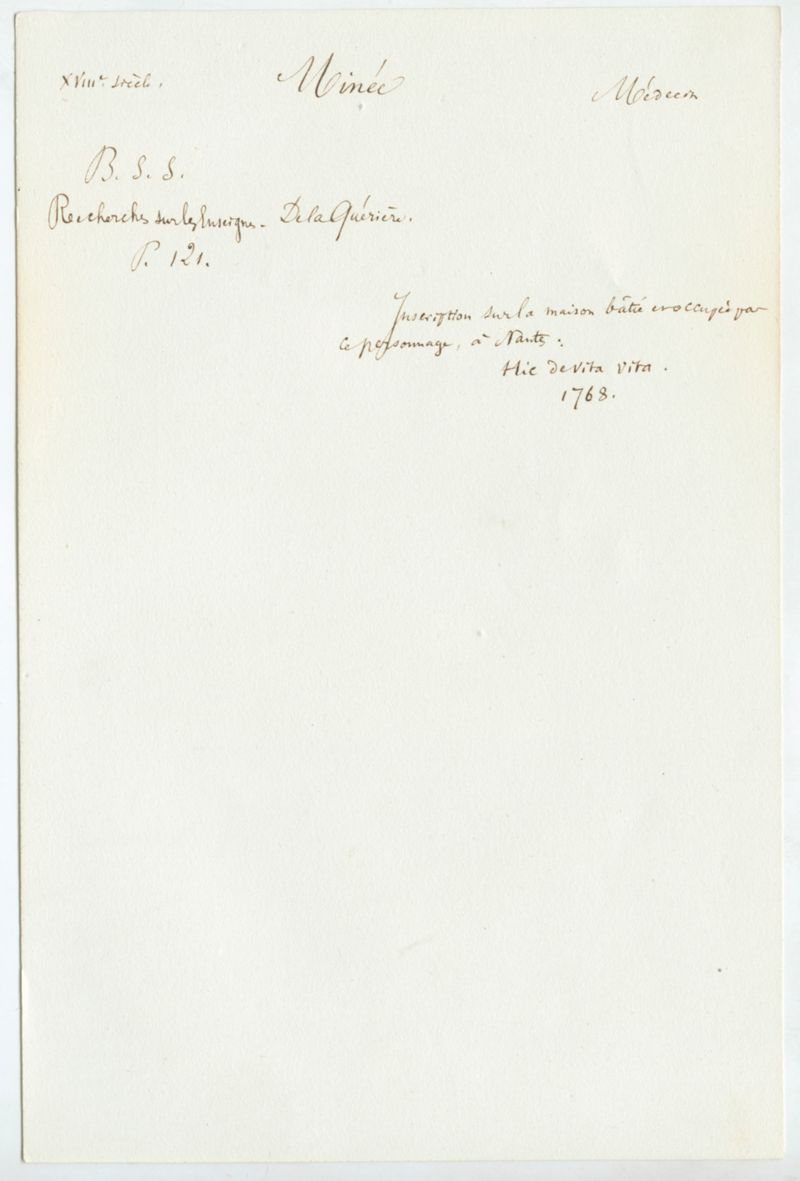 XVIIIe siècle. Minée Médecin
B. S. S.
Recherches sur les Enseignes - De la Quérière.
P. 121.
Inscription sur la maison bâtie et occupée par
ce personnage, à Nantes :
Hic de vita vita.
1768.